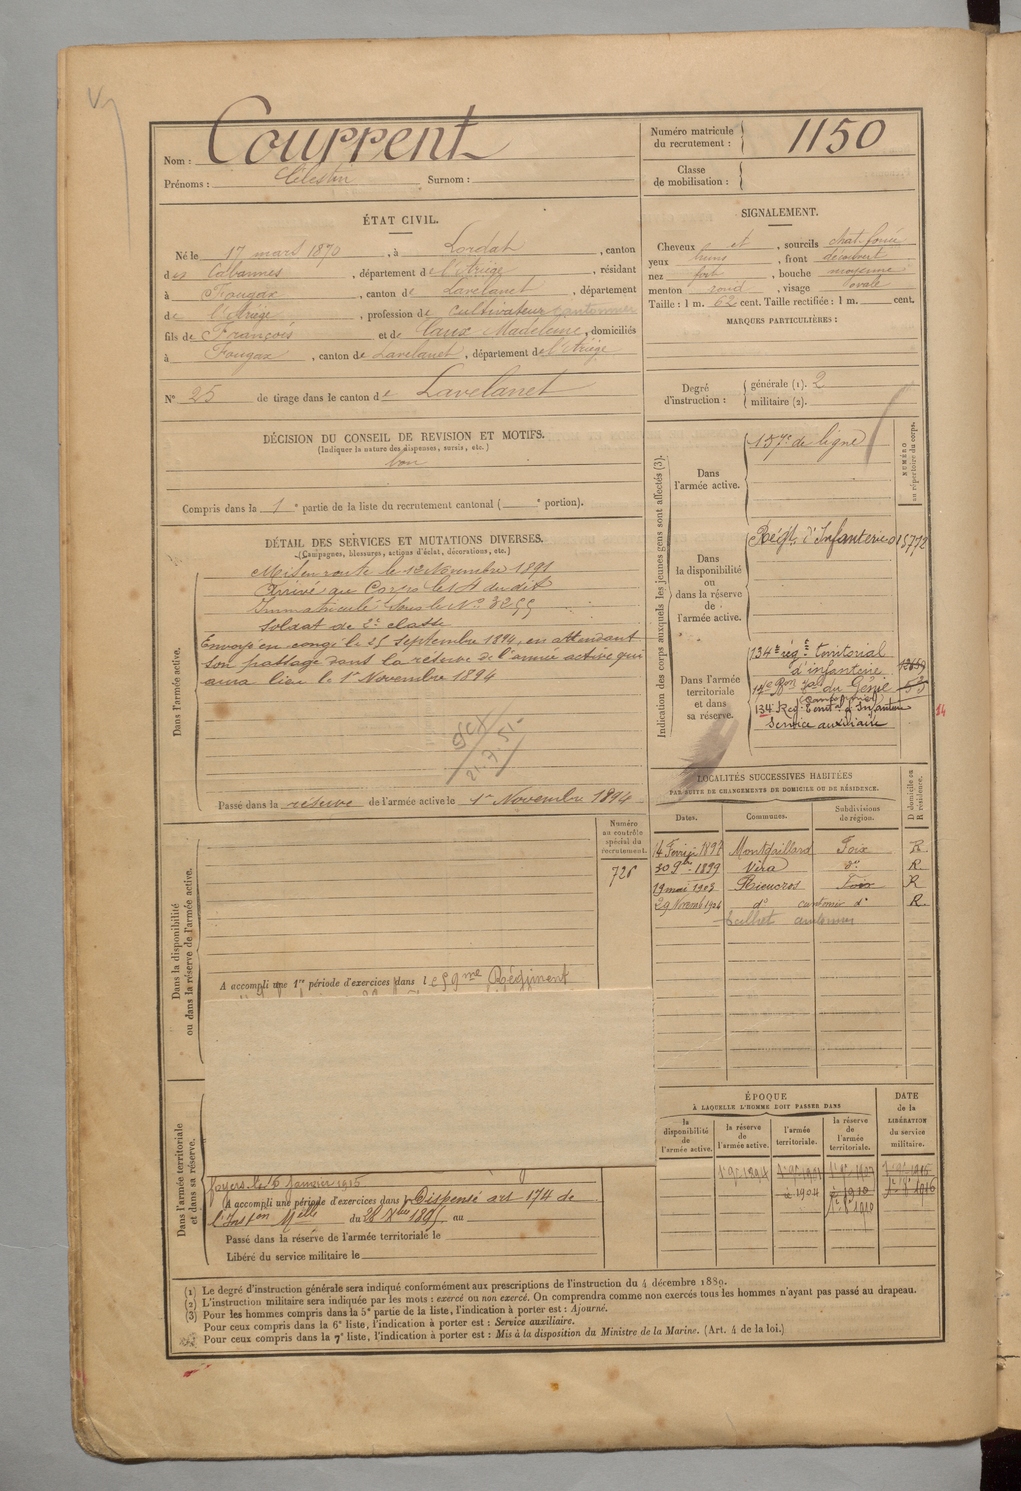 Nom : Courrent
Prénoms : Célestin Surnom :
Numéro matricule du recrutement : 1150
Classe de mobilisation :
ÉTAT CIVIL.
Né le 17 mars 1870, à Lordat, canton
des Cabannes, département de l'Ariège, résidant
à Fougax, canton de Lavelanet, département
de l'Ariège, profession de cultivateur cantonnier
fils de François et de Caux Madeleine, domiciliés
à Fougax, canton de Lavelanet, département de l'Ariège
N° 25 de tirage dans le canton de Lavelanet
SIGNALEMENT.
Cheveux et, sourcils chat. foncé
yeux bruns, front découvert
nez fort, bouche moyenne
menton rond, visage ovale
Taille : 1 m. 62 cent. Taille rectifiée : 1 m. cent.
MARQUES PARTICULIÈRES :
Degré d'instruction : générale (1). 2
militaire (2).
DÉCISION DU CONSEIL DE REVISION ET MOTIFS.
(Indiquer la nature des dispenses, sursis, etc.)
bon
Compris dans la 1e partie de la liste du recrutement cantonal ( e portion).
DÉTAIL DES SERVICES ET MUTATIONS DIVERSES.
(Campagnes, blessures, actions d'éclat, décorations, etc.)
Dans l'armée active.
Mis en route le 12 Novembre 1891
Arrivé au Corps le 14 du dit
Immatriculé sous le N° 3255
Soldat de 2e classe
Envoyé en congé le 25 Septembre 1894, en attendant
son passage dans la réserve de l'armée active qui
aura lieu le 1er Novembre 1894
Passé dans la réserve de l'armée active le 1er Novembre 1894
Indication des corps auxquels les jeunes gens sont affectés (3).
NUMÉRO au répertoire du corps.
Dans l'armée active.
137e de ligne
Dans la disponibilité ou dans la réserve de l'armée active.
Régt. d'Infanterie 015772
Dans l'armée territoriale et dans sa réserve.
134e rég.t territorial
d'infanterie
du Génie
134 Rég. Territ. d'Infanterie
Service auxiliaire
LOCALITÉS SUCCESSIVES HABITÉES
PAR SUITE DE CHANGEMENTS DE DOMICILE OU DE RÉSIDENCE.
Dates. Communes. Subdivisions de région. D domicile ou R résidence.
4 Février 1897 Montgaillard Foix R
30 9bre 1899 Vira do R.
19 mai 1903 Rieucros Foix R
29 Novemb 1904 do cantonnier do R.
Dans la disponibilité ou dans la réserve de l'armée active.
Numéro au contrôle spécial du recrutement.
726
A accompli une 1re période d'exercices dans le 59me Régiment
Dans l'armée territoriale et dans sa réserve.
foyers le 6 Janvier 1916
A accompli une période d'exercices dans Dispensé art 174 de
l'Inst.on Mlle du 28 Xbre 1895 au
Passé dans la réserve de l'armée territoriale le
Libéré du service militaire le
ÉPOQUE
À LAQUELLE L'HOMME DOIT PASSER DANS
la disponibilité de l'armée active. la réserve de l'armée active. l'armée territoriale. la réserve de l'armée territoriale.
DATE de la LIBÉRATION du service militaire.
(1) Le degré d'instruction générale sera indiqué conformément aux prescriptions de l'instruction du 4 décembre 1889.
(2) L'instruction militaire sera indiquée par les mots : exercé ou non exercé. On comprendra comme non exercés tous les hommes n'ayant pas passé au drapeau.
(3) Pour les hommes compris dans la 5e partie de la liste, l'indication à porter est : Ajourné.
Pour ceux compris dans la 6e liste, l'indication à porter est : Service auxiliaire.
Pour ceux compris dans la 7e liste, l'indication à porter est : Mis à la disposition du Ministre de la Marine. (Art. 4 de la loi.)